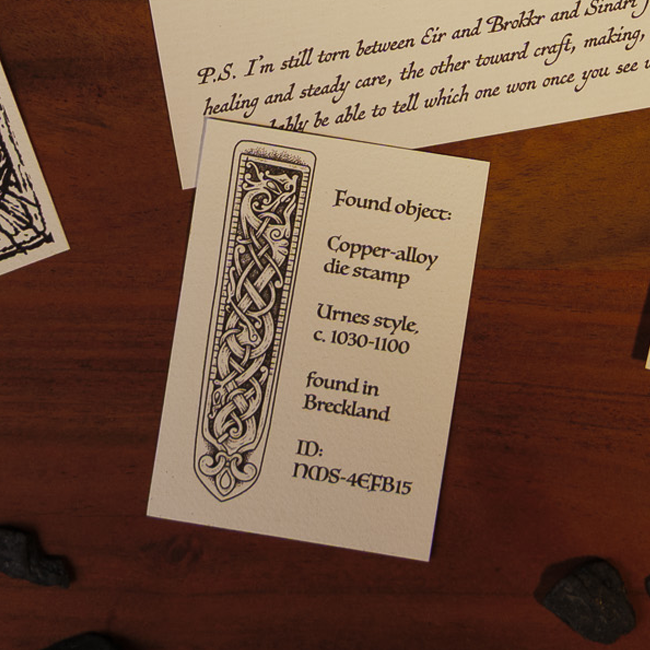 P.S. I'm still torn between Eir and Brokkr and Sindri
healing and steady care, the other toward craft, making,
be able to tell which one won once you see
Found object:
Copper-alloy
die stamp
Urnes style,
c. 1030-1100
found in
Breckland
ID:
NMS-4EFB15